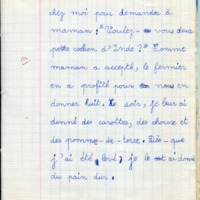 chez moi pour demander à
maman : "Voulez-vous deux
petits cochon d'Inde ?" Comme
maman a accepté, le fermier
en a profité pour nous en
donner huit. Ce soir, je leur ai
donné des carottes, des choux et
des pommes-de-terre. Dès-que
j'ai été levé, je leur ai donné
du pain dur.